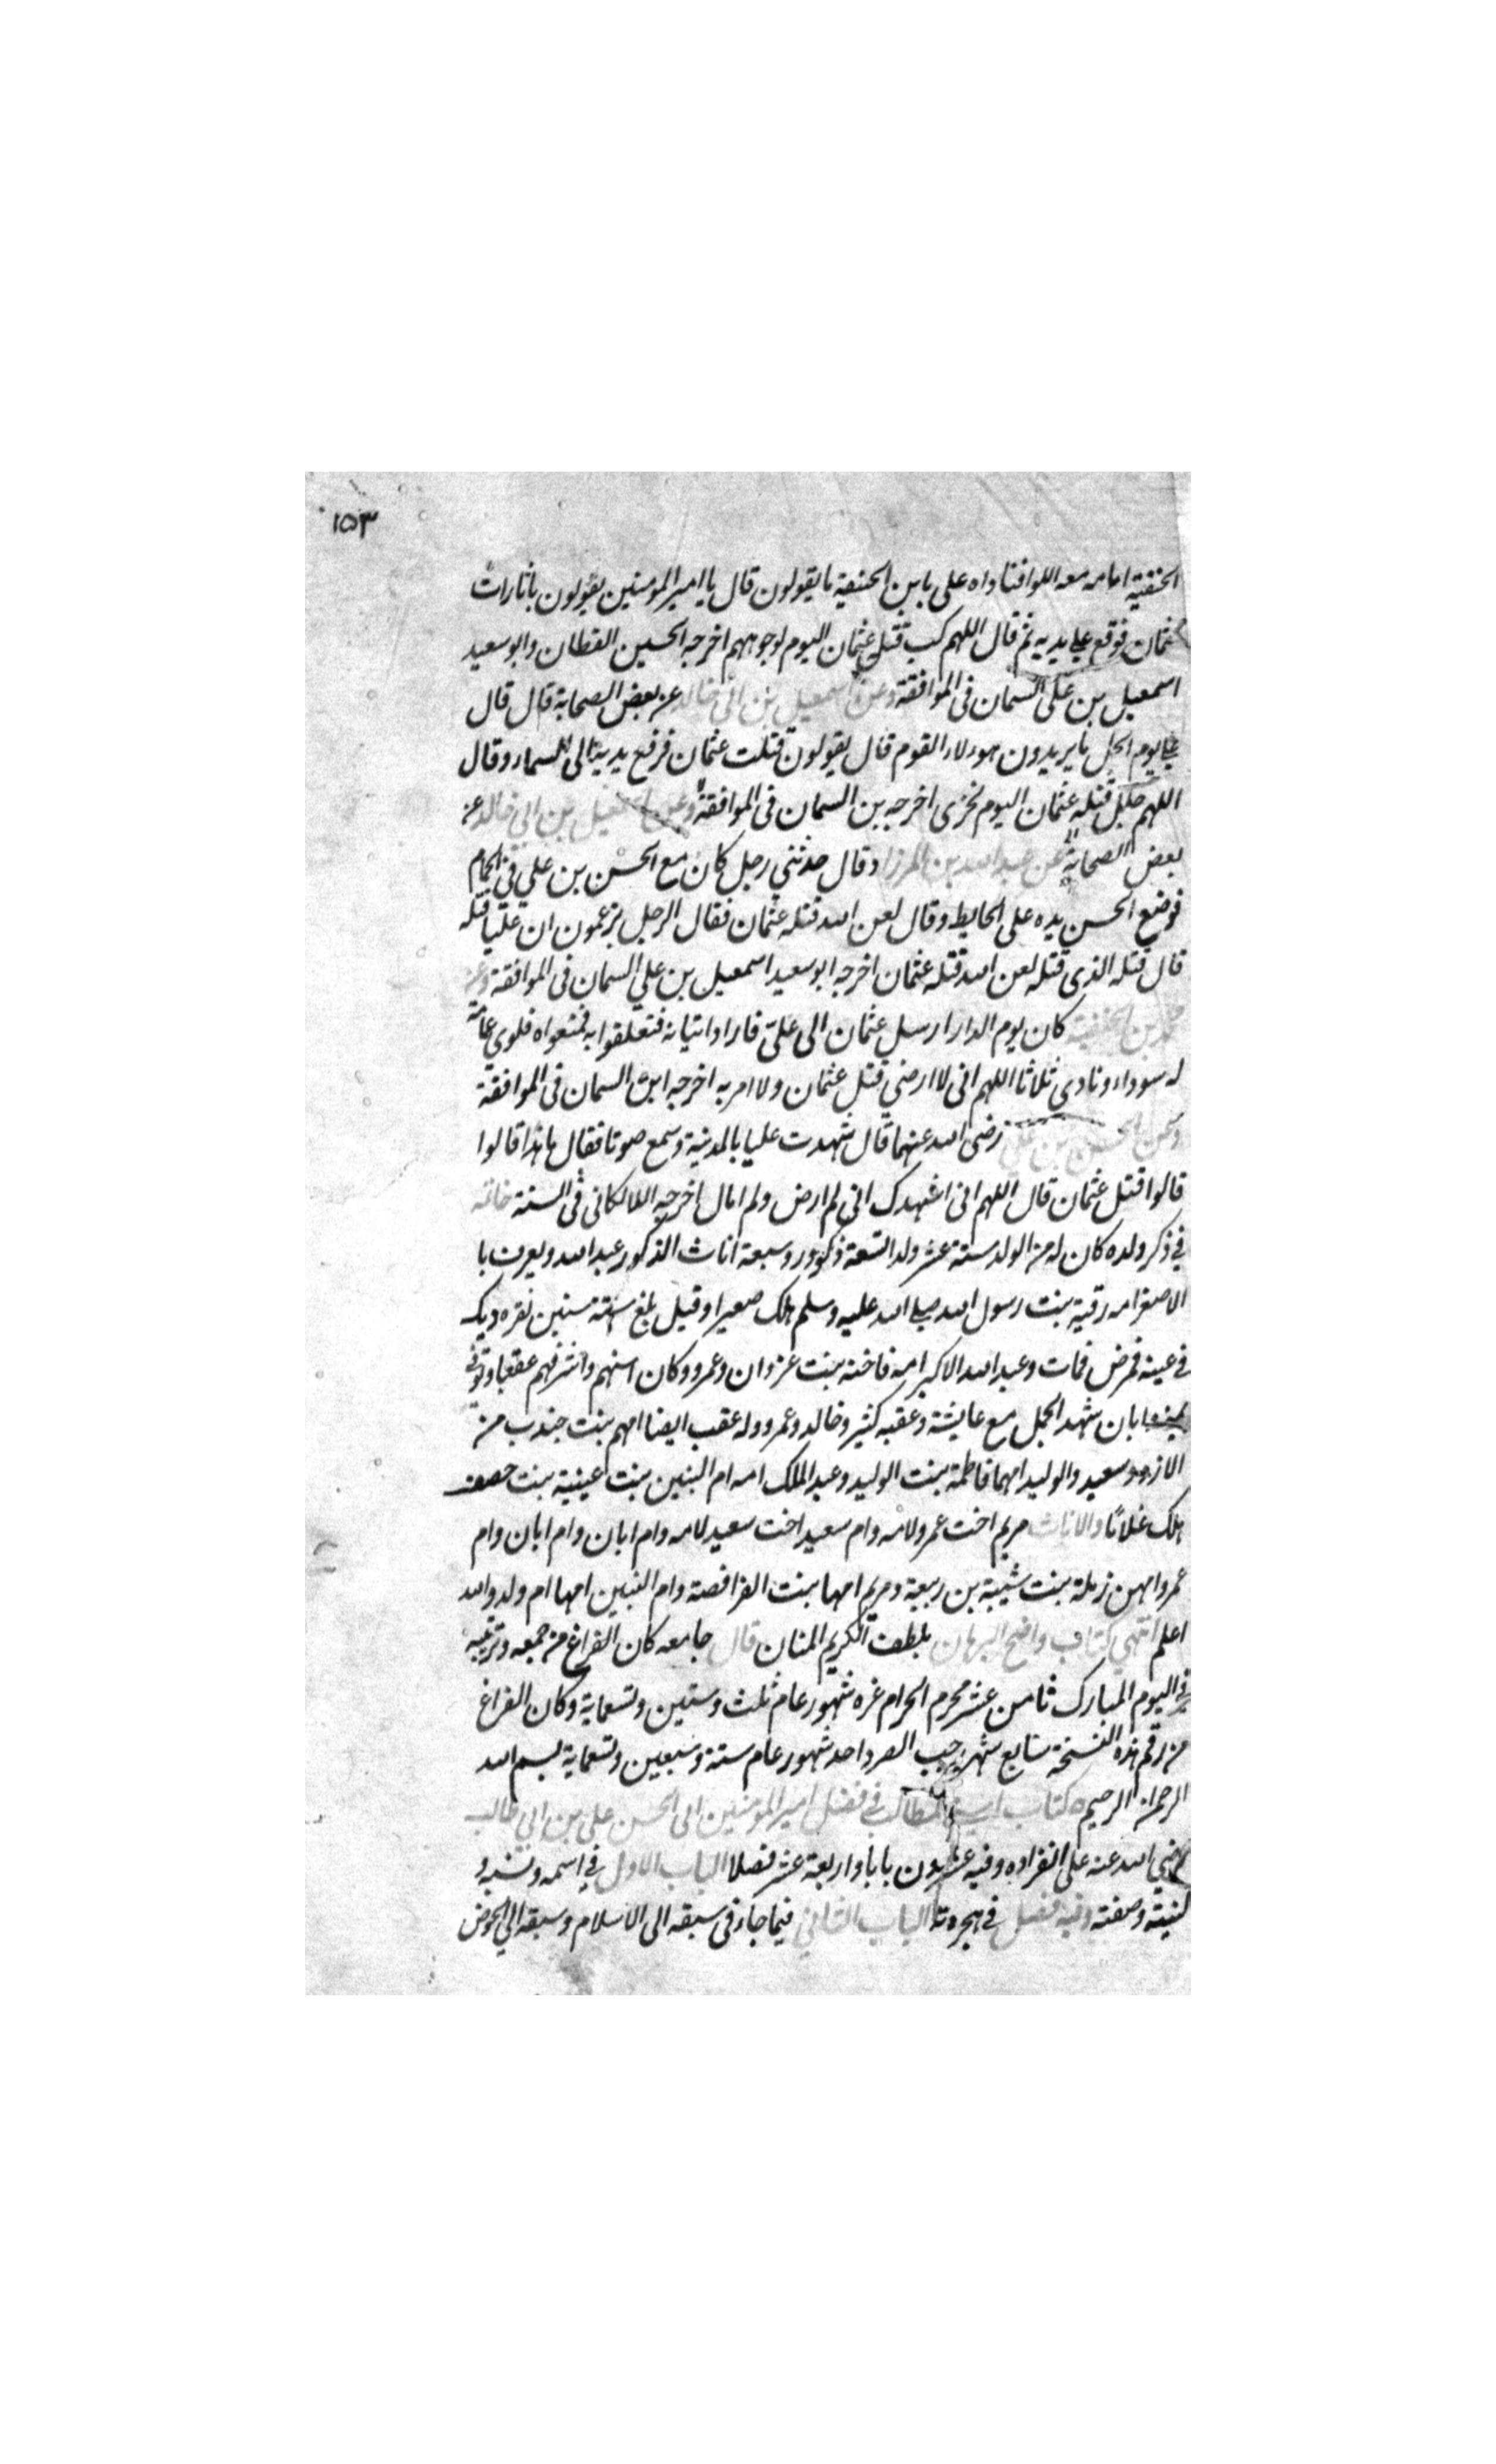 ١٥٣
الحنفية امامه معه اللوا فناداه على يا بن الحنفية ما يقولون قال يا امير المومنين يقولون يا ثارات
عثمان فوقع على يديه ثم قال اللهم كب قتلة عثمان اليوم لوجوههم اخرجه الحسين القطان وابو سعيد
اسمعيل بن على السمان فى الموافقة وعن اسمعيل بن ابي خالد عن بعض الصحابة قال قال
على يوم الجمل ما يريدون هولاء القوم قال يقولون قتلت عثمان فرفع يديه الى السماء وقال
اللهم جلل قتلة عثمان اليوم بخزى اخرجه بن السمان فى الموافقة وعن اسمعيل بن ابي خالد عن
بعض الصحابة عن عبد الله بن وقال حدثني رجل كان مع الحسن بن علي في الحمام
فوضع الحسن يده على الحايط وقال لعن الله قتلة عثمان فقال الرجل يزعمون ان عليا قتله
قال قتله الذى قتله لعن الله قتلة عثمان اخرجه ابو سعيد اسمعيل بن علي السمان فى الموافقة وعن
محمد بن الحنفية كان يوم الدار ارسل عثمان الى على فاراد اتيانه فتعلقوا به فمنعواه فلوى عمامة
له سوداء ونادى ثلاثا اللهم انى لا ارضي قتل عثمان ولا امر به اخرجه ابن السمان فى الموافقة
وعن الحسين بن علي رضى الله عنهما قال شهدت عليا بالمدينة وسمع صوتا فقال ما هذا قالوا
قالوا قتل عثمان قال اللهم انى اشهدك انى لم ارض ولم امال اخرجه اللالكائى فى السنة خاتمة
في ذكر ولده كان له من الولد ستة عشر ولد اتسعة ذكور وسبعة اناث الذكور عبد الله ويعرف با
الاصغر امه رقية بنت رسول الله صلى الله عليه وسلم هلك صغيرا وقيل بلغ ستة سنين نقره ديك
في عينه فمرض فمات وعبد الله الاكبر امه فاخته بنت غزوان وعمرو وكان اسنهم واشرفهم عقبا وتوفي
بمنى وابان شهد الجمل مع عايشة وعقبه كثير وخالد وعمرو وله عقب ايضا امهم بنت جندب من
الازد وسعيد والوليد امهما فاطمة بنت الوليد وعبد الملك امه ام البنين بنت عيينة بنت حصن
هلك غلامًا والاناث مريم اخت عمرو لامه وام سعيد اخت سعيد لامه وام ابان وام ابان وام
عمرو امهن رملة بنت شيبة بن ربيعة ومريم امها بنت الفرافصة وام البنين امها ام ولد والله
اعلم انتهي كتاب واضح البرهان بلطف الكريم المنان قال جامعه كان الفراغ من جمعه وترتيبه
في اليوم المبارك ثامن عشر محرم الحرام غره شهور عام ثلث وستين وتسعماية وكان الفراغ
من رقم هذه النسخة سابع شهر رجب الفرد احد شهور عام ستة وسبعين وتسعماية بسم الله
الرحمن الرحيم كتاب اسنى المطالب في فضل امير المومنين ابى الحسن على بن ابي طالب
رضي الله عنه على انفراده وفيه عشرون بابا واربعة عشر فصلا الباب الاول في اسمه ونسبه و
كنيته وصفته وفيه فصل في هجرته الباب الثاني فيما جاء فى سبقه الى الاسلام وسبقه الي الحوض